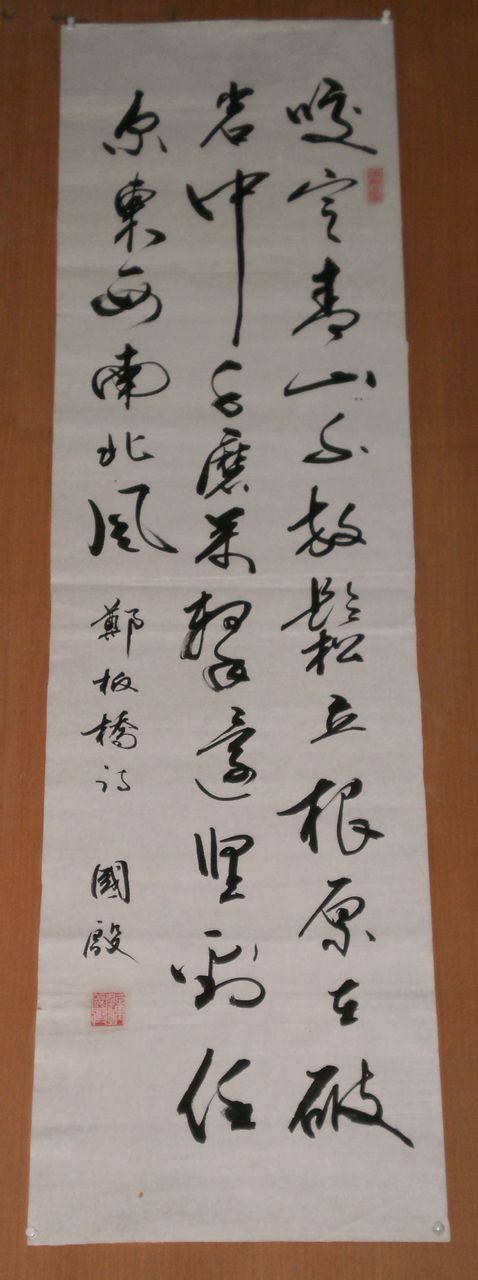 咬定青山不放鬆立根原在破
岩中千磨萬擊還坚勁任
尔東西南北風
鄭板橋詩
國